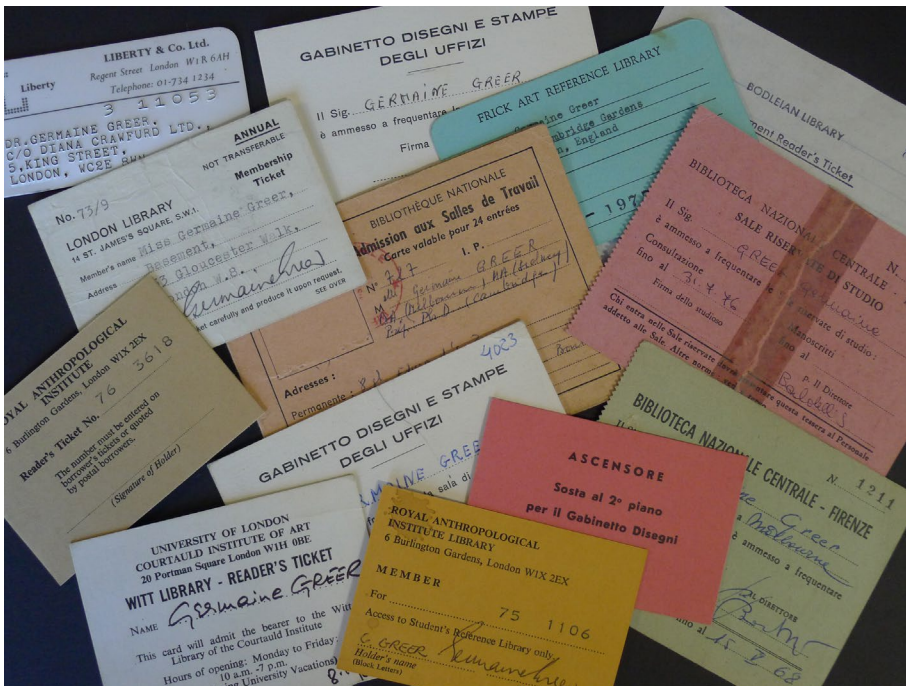 LIBERTY & Co. Ltd.
Regent Street London W1R 6AH
Telephone: 01-734 1234
Liberty
3 11053
DR.GERMAINE GREER,
C/O DIANA CRAWFURD LTD.,
5,KING STREET,
LONDON, WC2E
GABINETTO DISEGNI E STAMPE
DEGLI UFFIZI
Il Sig. GERMAINE GREER
è ammesso a frequentare
Firma
FRICK ART REFERENCE LIBRARY
Germaine Greer
Gardens
England
BODLEIAN LIBRARY
Reader's Ticket
ANNUAL
NOT TRANSFERABLE
Membership
Ticket
No. 73/9
LONDON LIBRARY
14 ST. JAMES'S SQUARE, S.W.1.
Member's name Miss Germaine Greer,
Basement,
Address Gloucester Walk,
London W.8.
Germaine Greer
carefully and produce it upon request.
SEE OVER
BIBLIOTHÈQUE NATIONALE
Admission aux Salles de Travail
Carte valable pour 24 entrées
I. P.
N° 787
Germaine GREER
Adresses :
Permanente :
BIBLIOTECA NAZIONALE CENTRALE
N.
SALE RISERVATE DI STUDIO
Il Sig. GREER Germaine
è ammesso a frequentare
riservare di studio:
Consultazione
manoscritti
fino al 31.X.76
fino al
Firma dello studioso
Il Direttore
Chi entra nelle Sale riservate
questa tessera al Personale
addetto alle Sale. Altre norme
ROYAL ANTHROPOLOGICAL
INSTITUTE
6 Burlington Gardens, London W1X 2EX
Reader's Ticket No. 76 3618
The number must be entered on
borrower's tickets or quoted
by postal borrowers.
(Signature of Holder)
4023
GABINETTO DISEGNI E STAMPE
DEGLI UFFIZI
GERMAINE GREER
sala di
ASCENSORE
Sosta al 2° piano
per il Gabinetto Disegni
BIBLIOTECA NAZIONALE CENTRALE - FIRENZE
N. 1211
Greer
Melbourne
è ammesso a frequentare
IL DIRETTORE
fino al 15 V 68
UNIVERSITY OF LONDON
COURTAULD INSTITUTE OF ART
20 Portman Square London W1H 0BE
WITT LIBRARY - READER'S TICKET
NAME Germaine GREER
This card will admit the bearer to the Witt
Library of the Courtauld Institute
Hours of opening: Monday to Friday:
10 a.m. -7 p.m.
University Vacations)
ROYAL ANTHROPOLOGICAL
INSTITUTE LIBRARY
6 Burlington Gardens, London W1X 2EX
MEMBER
For 75 1106
Access to Student's Reference Library only
G. GREER Germaine Greer
Holder's name
(Block Letters)